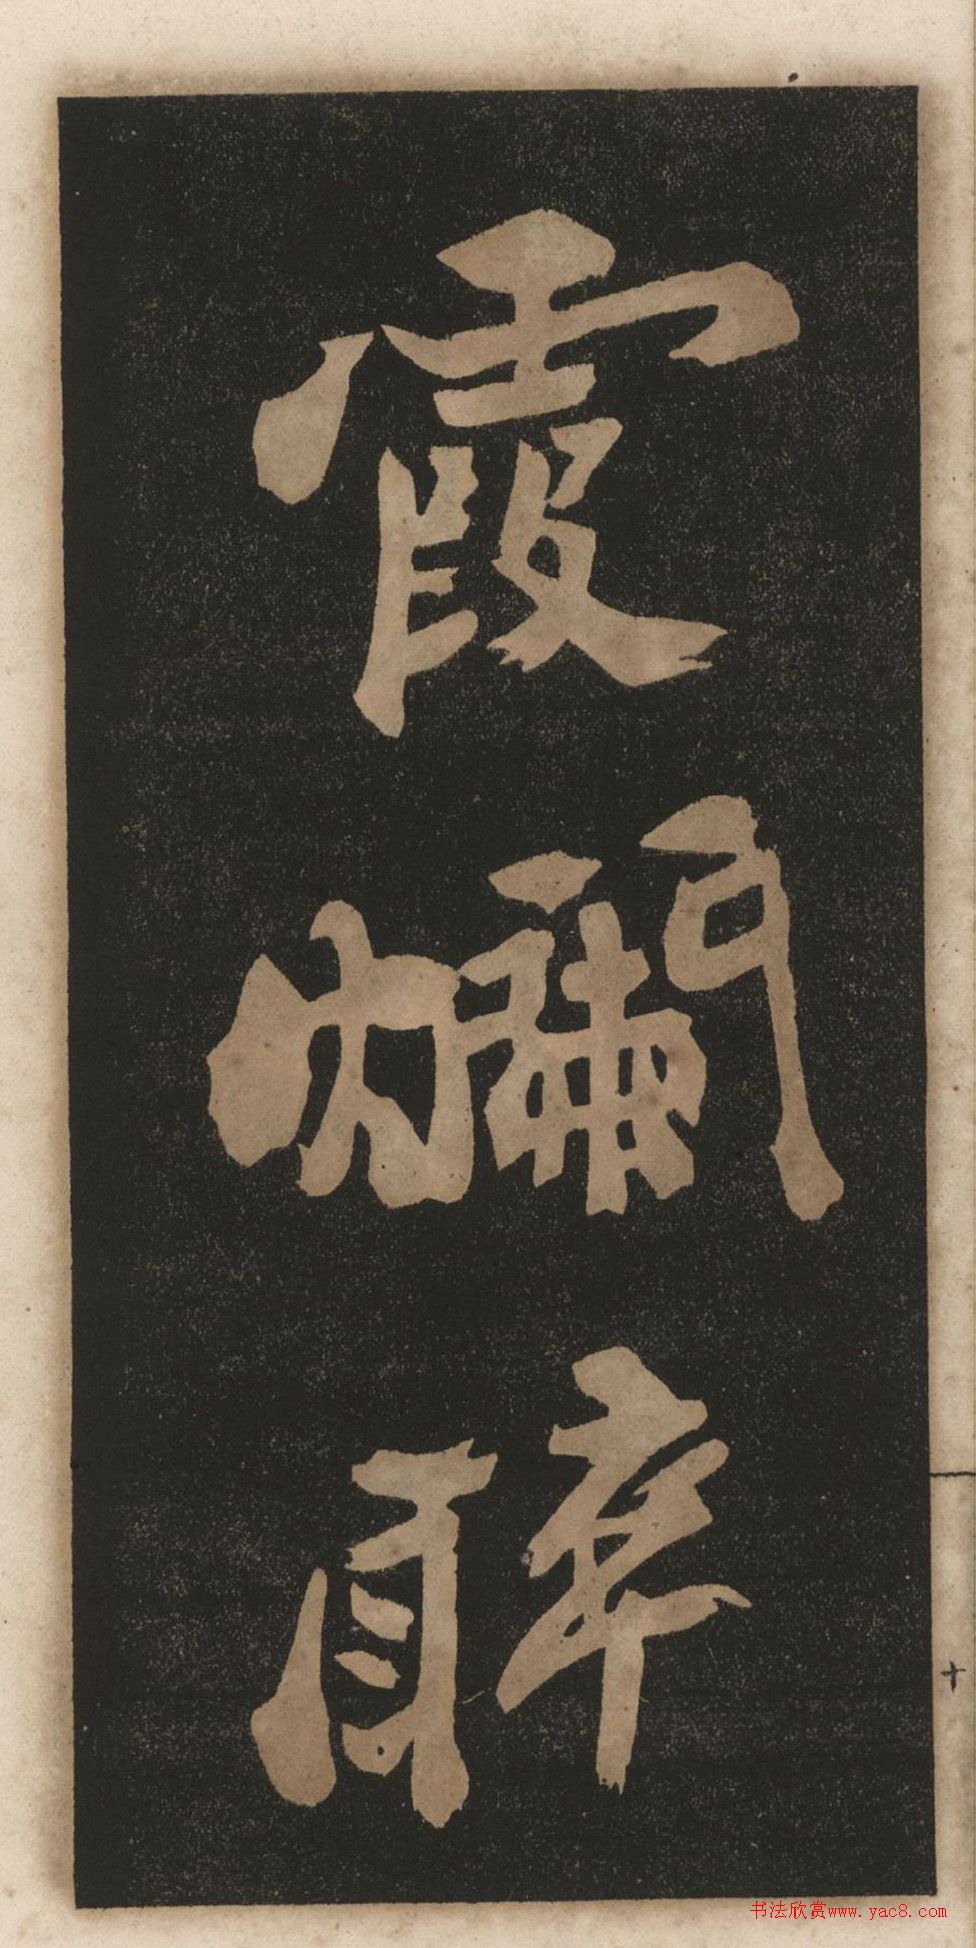 霞
爛
晬
书法欣赏www.yac8.com
十